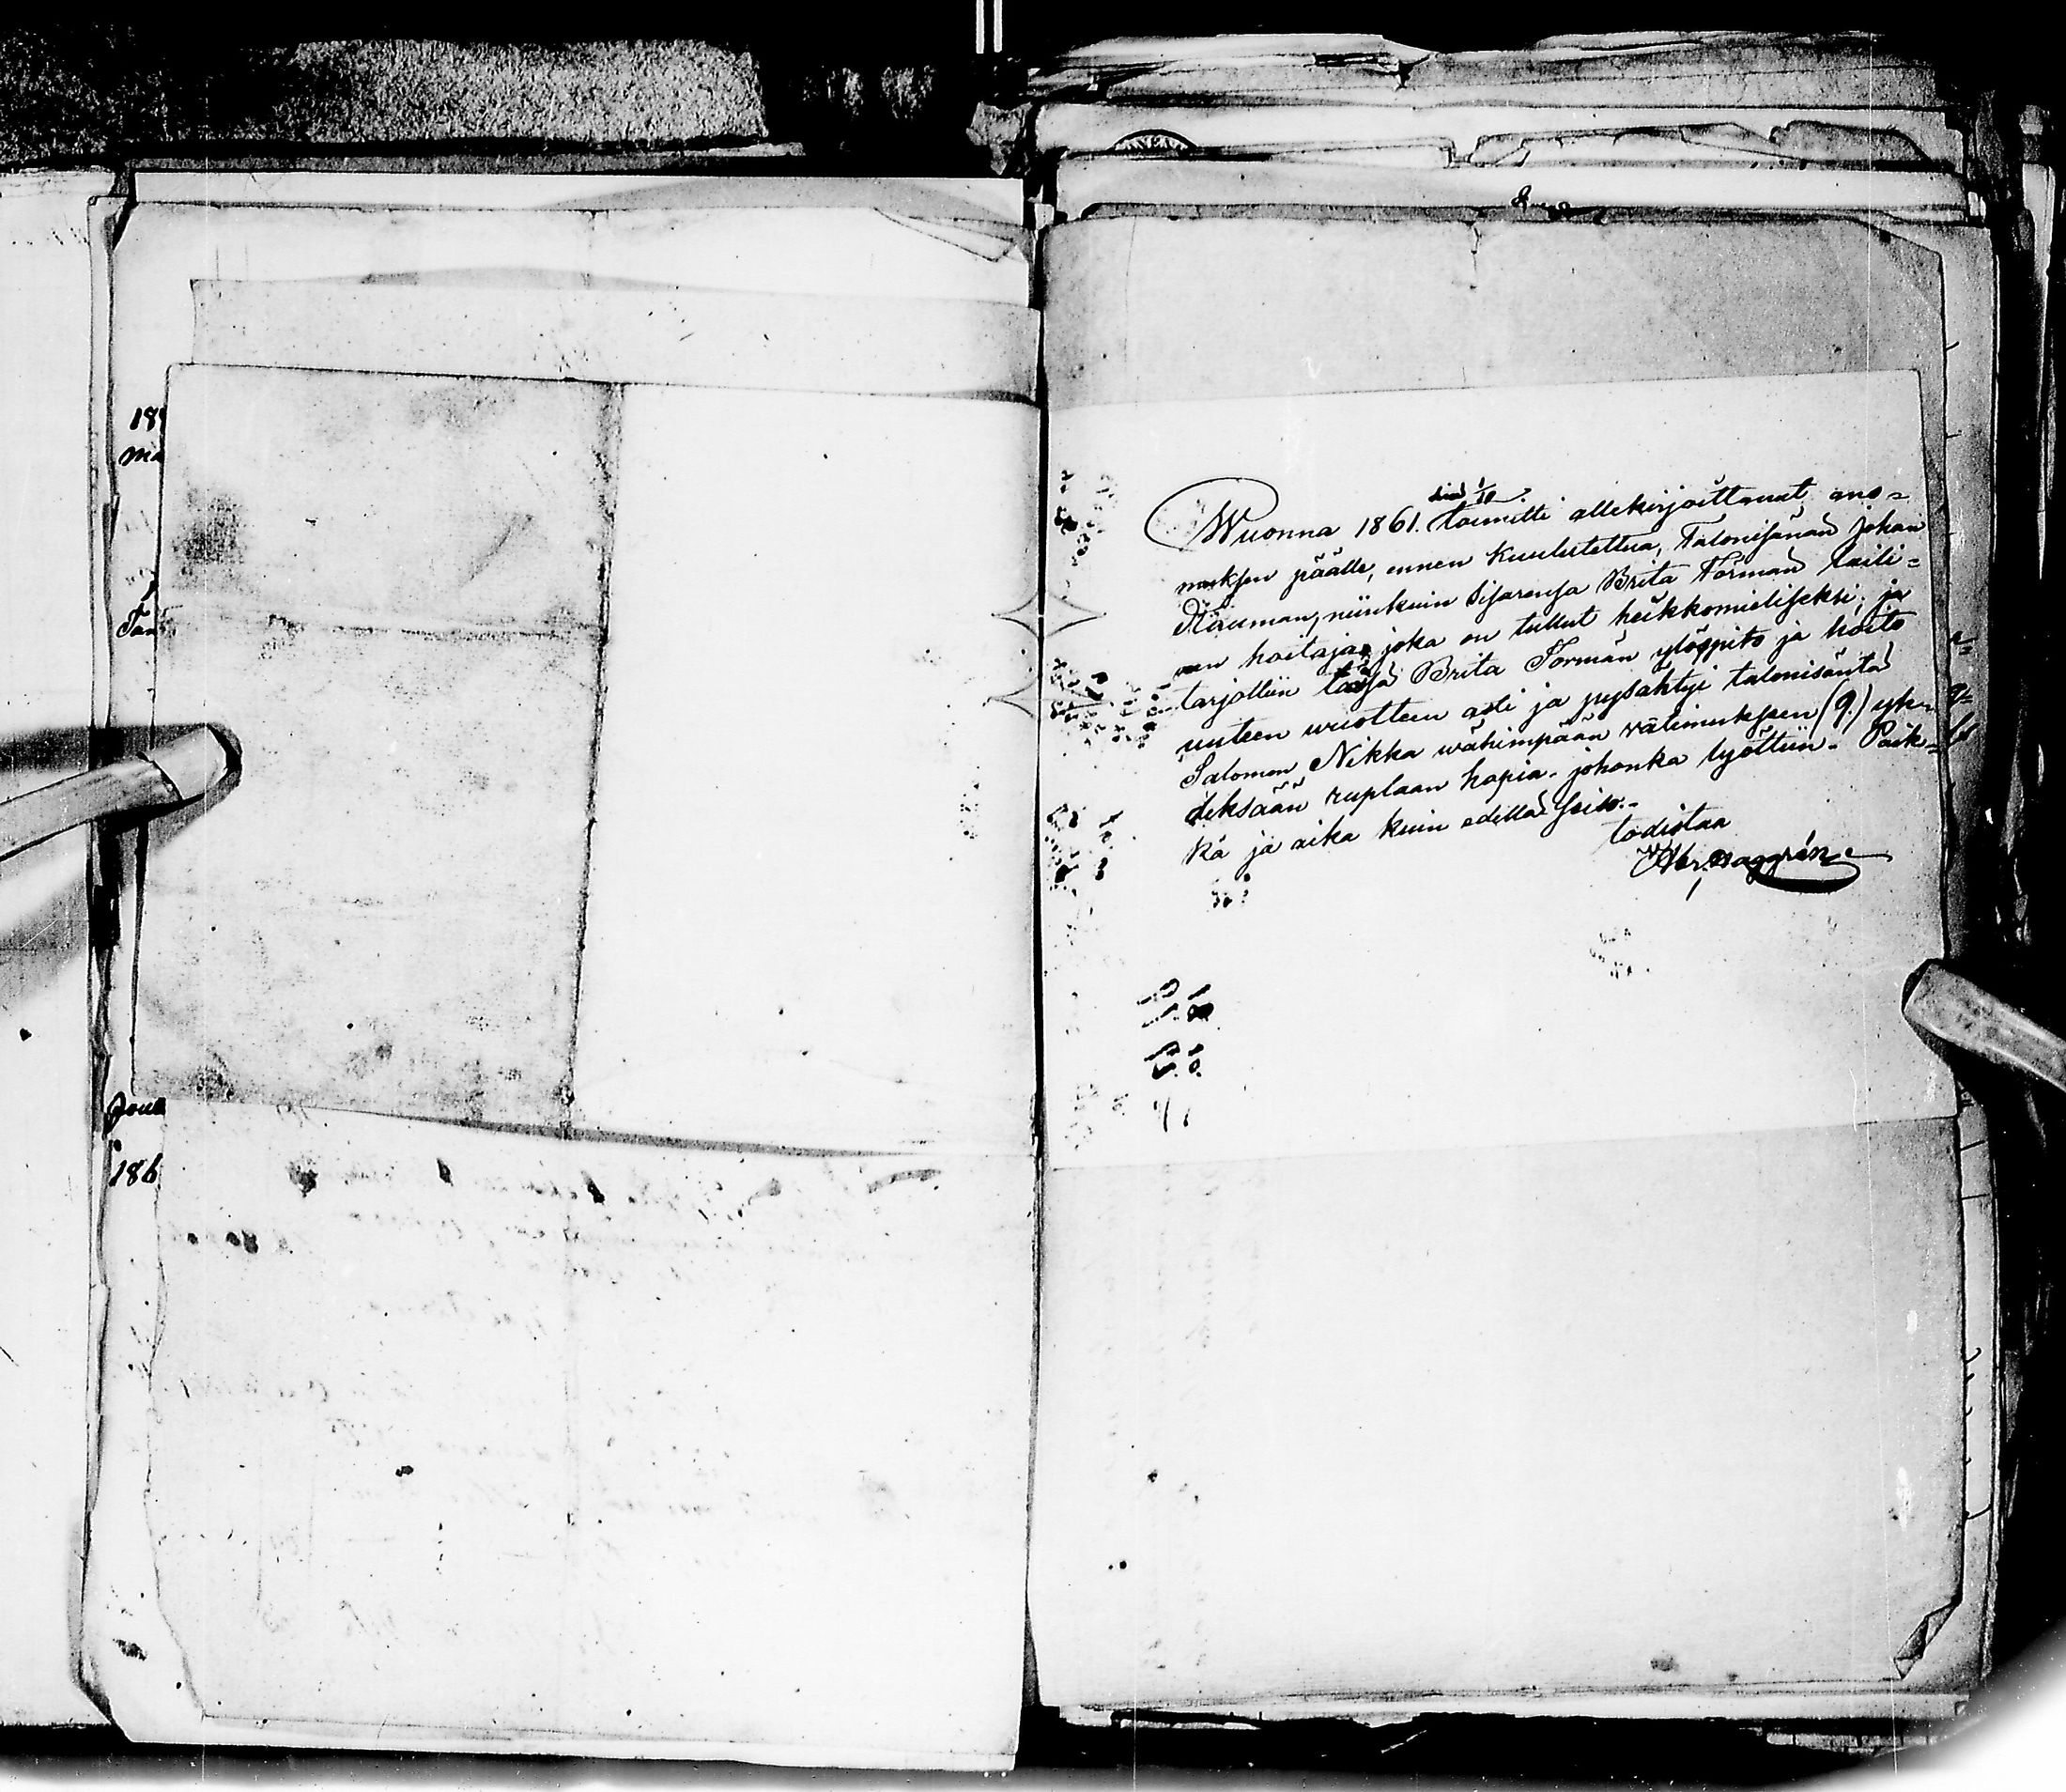 188
ma
Tän
Joul
186
Wuonna 1861. siad 1/10. toimitti allekirjoittanut ano=
muksen päälle, ennen kuulutettua, Talonisänän Johan
Rauman, niinkuin Sisarensa Brita Törmän laili=
sen hoitajan joka on tullut heikkomieliseksi; ja
tarjottiin tässä Brita Törmän ylöspito ja hoito
uuteen wuotteen asti ja pysähtyi talonisäntä
Salomon Nikka wähimpään vaatimukseen (9.) yh=
deksään ruplaan hopia. johonka lyöttiin. Paik=
ka ja aika kuin edellä seiso.
todistaa
Abr. Haggrén